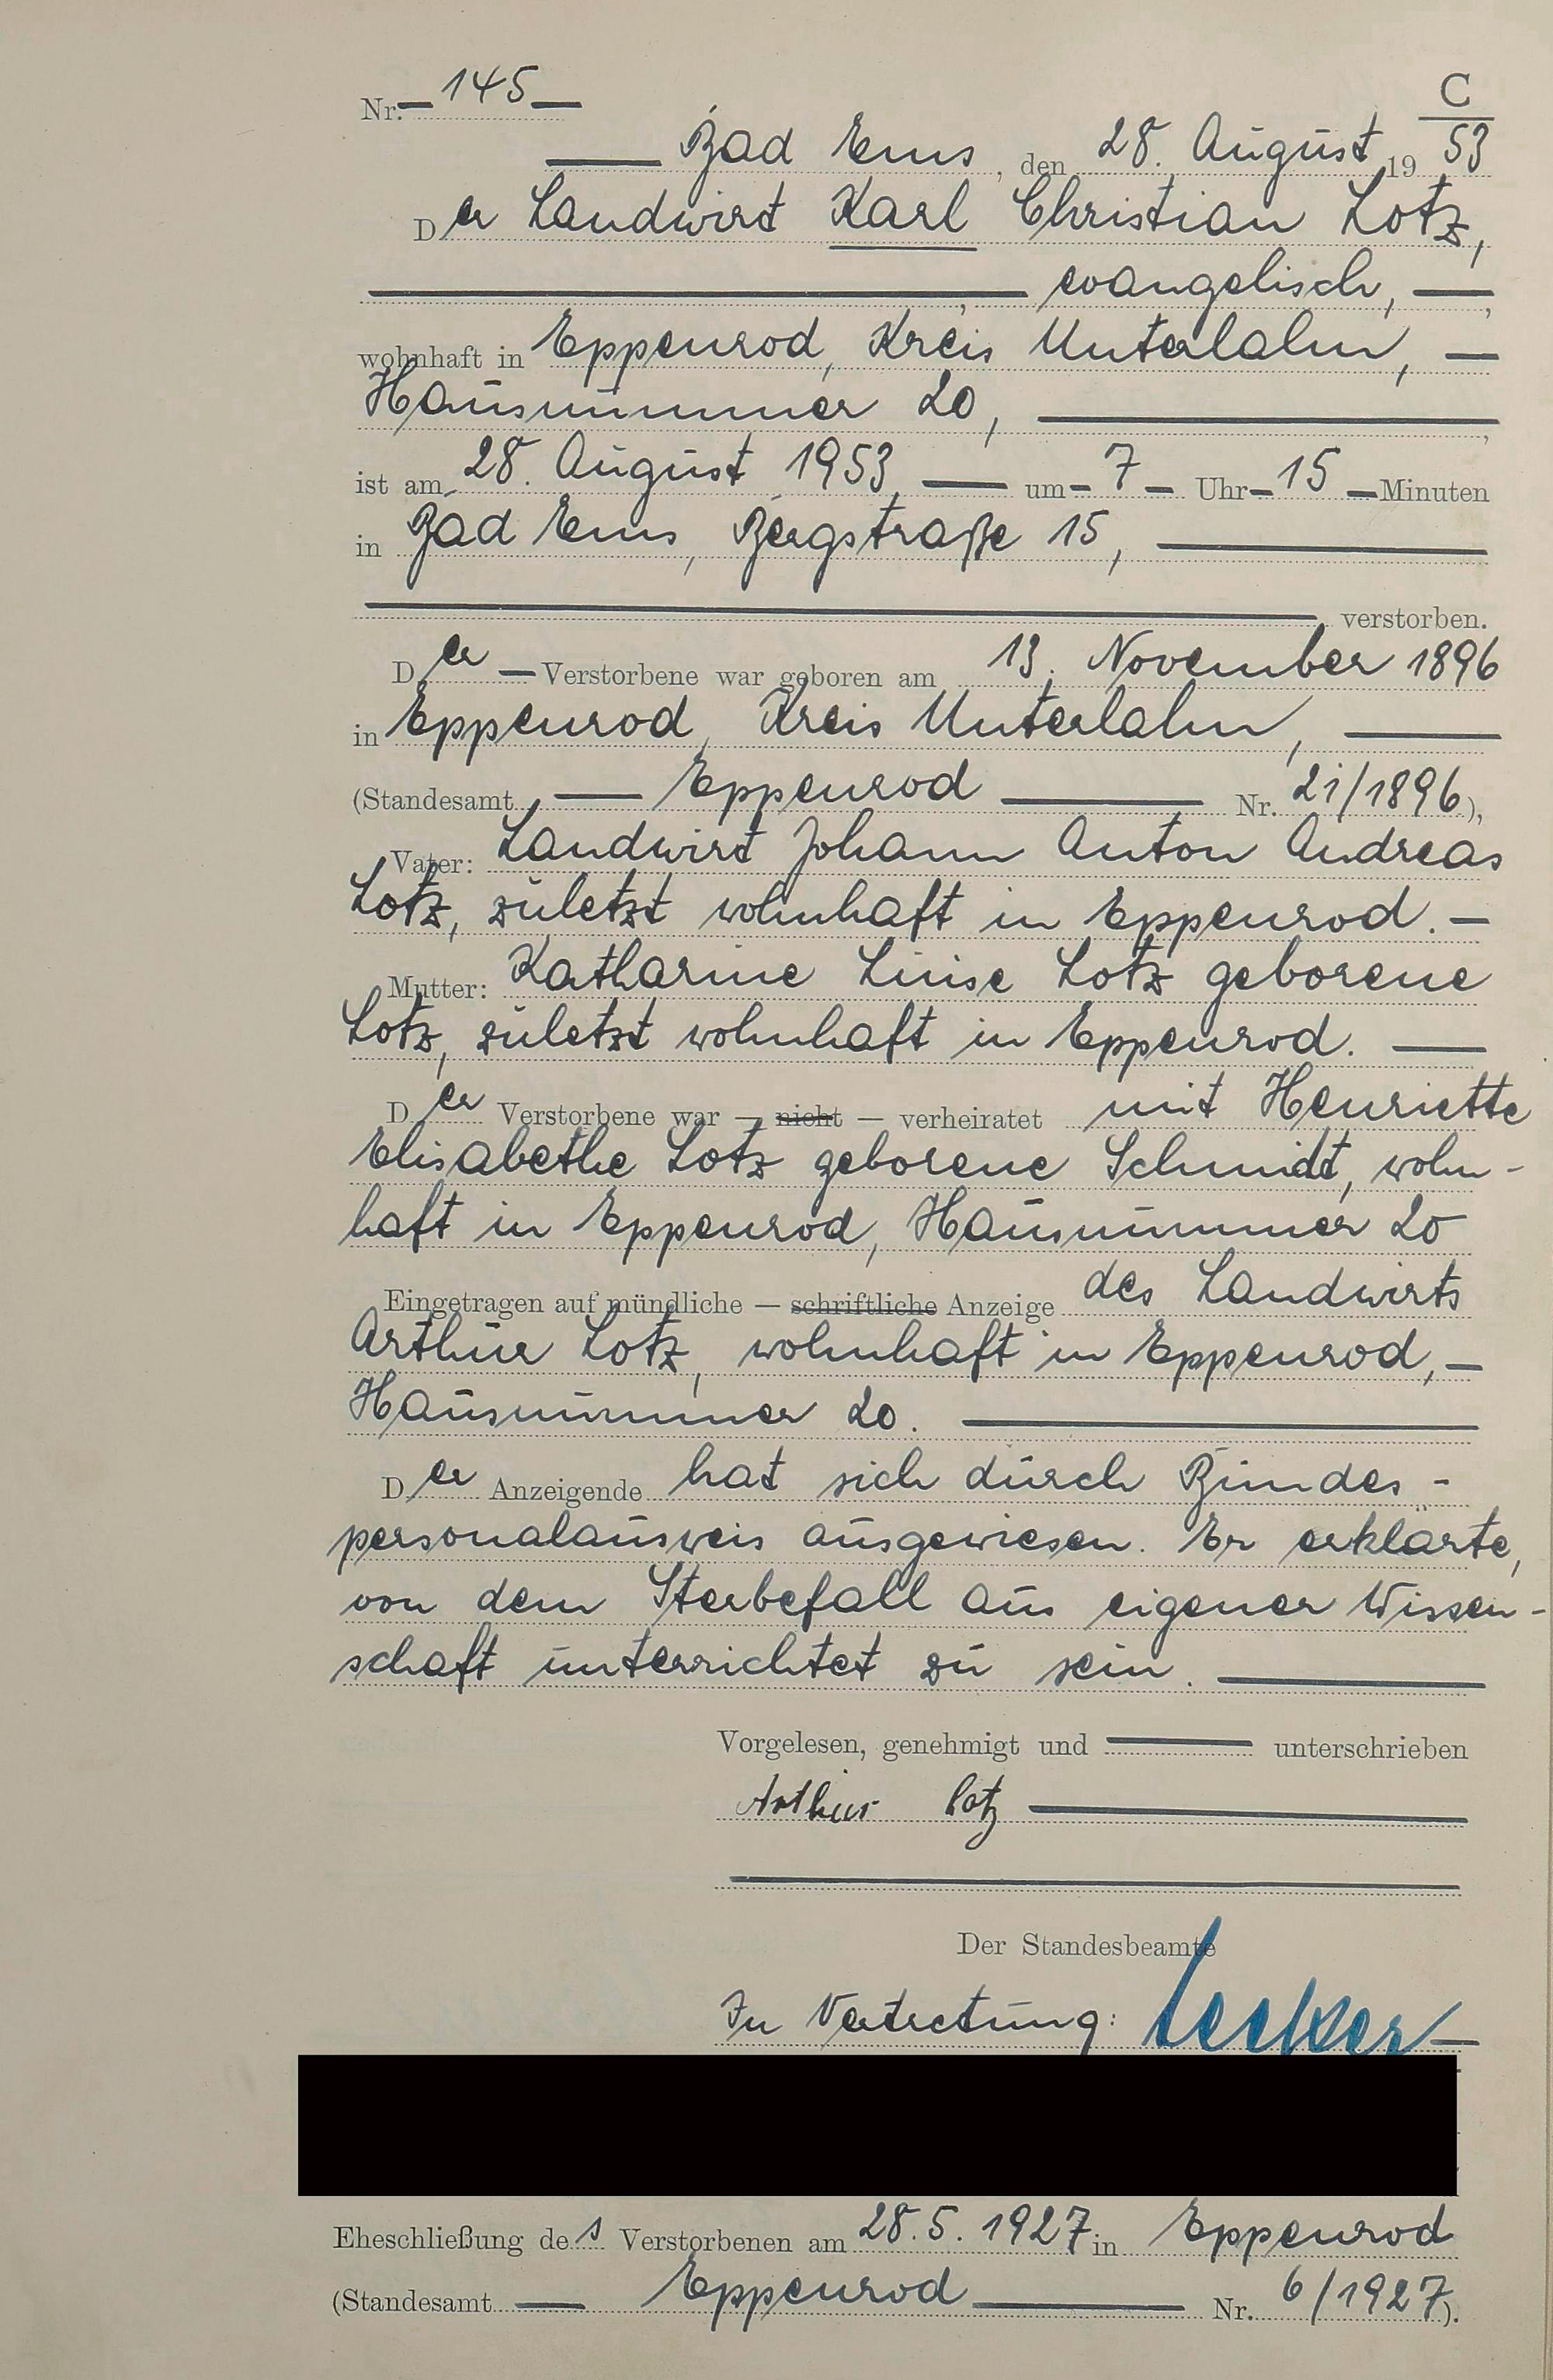 C
Nr. 145
Bad Ems, den 28. August 1953
Der Landwirt Karl Christian Lotz,
evangelisch,
wohnhaft in Eppenrod, Kreis Unterlahn,
Hausnummer 20,
ist am 28. August 1953 um 7 Uhr 15 Minuten
in Bad Ems, Bergstraße 15,
verstorben.
Der Verstorbene war geboren am 13. November 1896
in Eppenrod, Kreis Unterlahn,
(Standesamt Eppenrod Nr. 21/1896),
Vater: Landwirt Johann Anton Andreas
Lotz, zuletzt wohnhaft in Eppenrod.
Mutter: Katharine Luise Lotz geborene
Lotz, zuletzt wohnhaft in Eppenrod.
Der Verstorbene war — nicht — verheiratet mit Henriette
Elisabethe Lotz geborene Schmidt, wohn-
haft in Eppenrod, Hausnummer 20
Eingetragen auf mündliche — schriftliche Anzeige des Landwirts
Arthur Lotz, wohnhaft in Eppenrod,
Hausnummer 20.
Der Anzeigende hat sich durch Bundes-
personalausweis ausgewiesen. Er erklärte,
von dem Sterbefall aus eigener Wissen-
schaft unterrichtet zu sein.
Vorgelesen, genehmigt und unterschrieben
Arthur Lotz
Der Standesbeamte
In Vertretung:
Eheschließung des Verstorbenen am 28.5.1927 in Eppenrod
(Standesamt Eppenrod Nr. 6/1927).